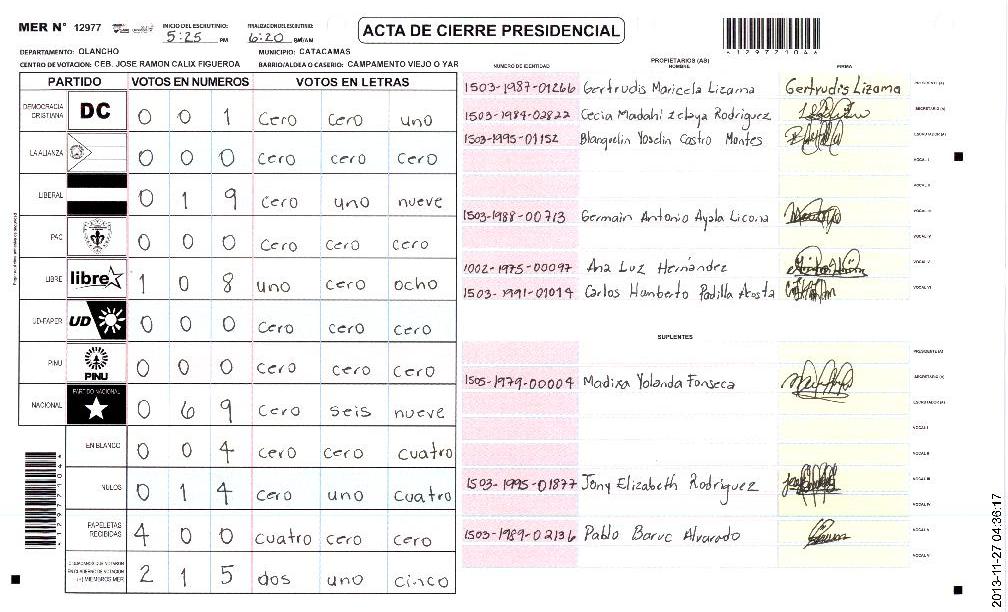 MER N° 12977
INICIO DEL ESCRUTINIO: 5:25 PM
FINALIZACION DEL ESCRUTINIO: 6:20 PM/AM
ACTA DE CIERRE PRESIDENCIAL
*129771046*
DEPARTAMENTO: OLANCHO
MUNICIPIO: CATACAMAS
CENTRO DE VOTACION: CEB. JOSE RAMON CALIX FIGUEROA
BARRIO/ALDEA O CASERIO: CAMPAMENTO VIEJO O YAR
PARTIDO VOTOS EN NUMEROS VOTOS EN LETRAS
DEMOCRACIA CRISTIANA DC 0 0 1 cero cero uno
LA ALIANZA 0 0 0 cero cero cero
LIBERAL 0 1 9 cero uno nueve
PAC 0 0 0 cero cero cero
LIBRE libre 1 0 8 uno cero ocho
UD-FAPER UD 0 0 0 cero cero cero
PINU PINU 0 0 0 cero cero cero
NACIONAL PARTIDO NACIONAL 0 6 9 cero seis nueve
EN BLANCO 0 0 4 cero cero cuatro
NULOS 0 1 4 cero uno cuatro
PAPELETAS RECIBIDAS 4 0 0 cuatro cero cero
CIUDADANOS QUE VOTARON EN CUADERNO DE VOTACION (+) MIEMBROS MER 2 1 5 dos uno cinco
*129771046*
PROPIETARIOS (AS)
NUMERO DE IDENTIDAD NOMBRE FIRMA
1503-1987-01266 Gertrudis Maricela Lizama Gertrudis Lizama PRESIDENTE (A)
1503-1984-02822 Cecia Madahí Zelaya Rodriguez SECRETARIO (A)
1503-1995-01152 Blanquelin Yoselin Castro Montes ESCRUTADOR (A)
VOCAL I
VOCAL II
1503-1988-00713 Germain Antonio Ayala Licona VOCAL III
VOCAL IV
1002-1975-00097 Ana Luz Hernández VOCAL V
1503-1991-01014 Carlos Humberto Padilla Acosta VOCAL VI
SUPLENTES
PRESIDENTE (A)
1505-1979-00004 Madixa Yolanda Fonseca SECRETARIO (A)
ESCRUTADOR (A)
VOCAL I
VOCAL II
1503-1995-01877 Jony Elizabeth Rodriguez VOCAL III
VOCAL IV
1503-1989-02136 Pablo Baruc Alvarado VOCAL V
VOCAL VI
2013-11-27 04:36:17